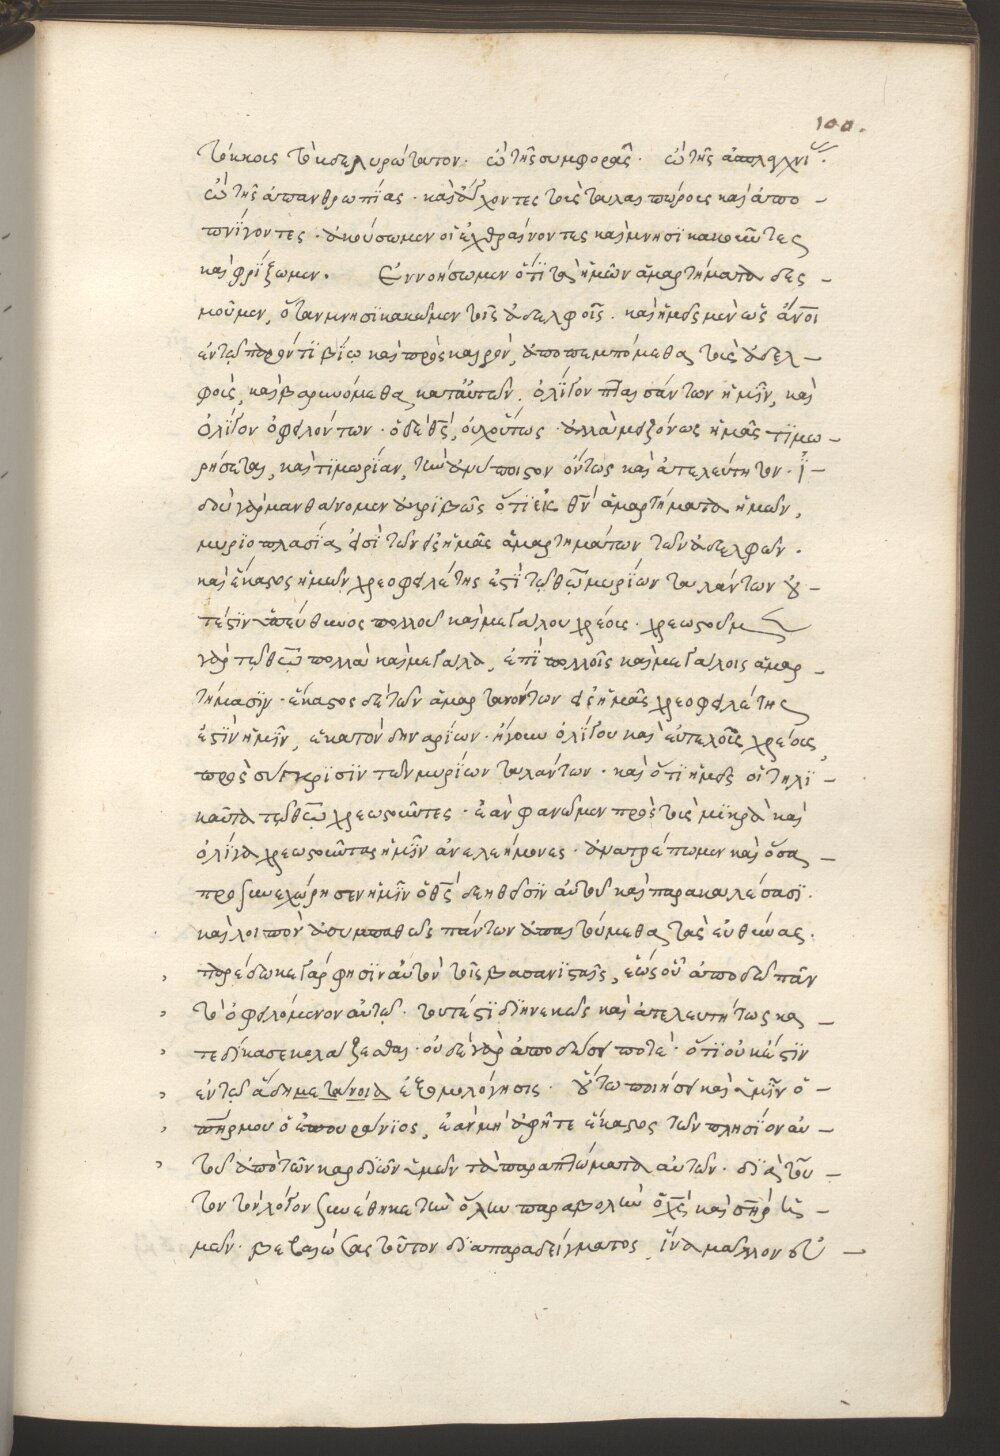 100.
τόκκοις τὸ κδελυρώτατον. ὢ τῆς συμφορᾶς. ὢ τῆς ἀσπλαγχνί
ὢ τῆς ἀπανθρωπίας. καὶ ἄγχοντες τοὺς ταλαιπώρους καὶ ἀπο-
πνίγοντες. ἀκούσωμεν οἱ ἐχθραίνοντες καὶ μνησικακοῦντες
καὶ φρίξωμεν. Ἐννοήσωμεν ὅτι τὰ ἡμῶν ἁμαρτήματα δες-
μοῦμεν, ὅταν μνησικακῶμεν τοῖς ἀδελφοῖς. καὶ ἡμεῖς μὲν ὡς ἄνοι
ἐν τῷ παρόντι βίῳ καὶ πρὸς καιρὸν, ἀποπεμπόμεθα τοὺς ἀδελ-
φοὺς, καὶ βαρυνόμεθα κατ' αὐτῶν, ὀλίγον πταισάντων ἡμῖν, καὶ
ὀλίγον ὀφειλόντων. ὁ δὲ θς, οὐχ οὕτως. ἀλλὰ μειζόνως ἡμᾶς τιμω-
ρήσεται, καὶ τιμωρίαν, τὴν ἀνύποιστον ὄντως καὶ ἀτελεύτητον. ἰ-
δοὺ γὰρ μανθάνομεν ἀκριβῶς ὅτι εἰς θν ἁμαρτήματα ἡμῶν,
μυριοπλασία εἰσὶ τῶν εἰς ἡμᾶς ἁμαρτημάτων τῶν ἀδελφῶν.
καὶ ἕκαστος ἡμῶν χρεοφειλέτης ἐστὶ τῷ θῷ μυρίων ταλάντων ȣ-
τέστιν ὑπεύθυνος πολλοῦ καὶ μεγάλου χρέους. χρεωστοῦμ
γὰρ τῷ θῷ πολλὰ καὶ μεγάλα, ἐπὶ πολλοῖς καὶ μεγάλοις ἁμαρ-
τήμασιν. ἕκαστος δὲ τῶν ἁμαρτανόντων εἰς ἡμᾶς χρεοφειλέτης
ἐστὶν ἡμῖν, ἑκατὸν δηναρίων. ἤγουν ὀλίγου καὶ εὐτελοῦς χρέους,
πρὸς σύγκρισιν τῶν μυρίων ταλάντων. καὶ ὅτι ἡμεῖς οἱ τηλι-
καῦτα τῷ θῷ χρεωστοῦντες. ἐὰν φανῶμεν πρὸς τοὺς μικρὰ καὶ
ὀλίγα χρεωστοῦντας ἡμῖν ἀνελεήμονες. ἀνατρέπωμεν καὶ ὅσα-
προσυνεχώρησεν ἡμῖν ὁ θς δεηθεῖσιν αὐτοῦ καὶ παρακαλέσασι.
καὶ λοιπὸν ἀσυμπαθῶς πάντων ἀπαιτούμεθα τὰς εὐθύνας.
παρέδωκε γάρ φησιν αὐτὸν τοῖς βασανισταῖς, ἕως οὗ ἀποδῶ πᾶν
τὸ ὀφειλόμενον αὐτῷ. τουτέστι διηνεκῶς καὶ ἀτελευτήτως κα-
τεδίκασε κολάζεσθαι. οὐδὲ γὰρ ἀποδώσει ποτέ. ὅτι οὐκ ἔστιν
ἐν τῷ ἅδη μετάνοια ἐξομολόγησις. οὕτω ποιήσει καὶ ὑμῖν ὁ-
πηρ μου ὁ ἐπουράνιος, ἐὰν μὴ ἀφῆτε ἕκαστος τῶν πλησίον αὐ-
τοῦ ἀπὸ τῶν καρδιῶν ὑμῶν τὰ παραπτώματα αὐτῶν. διὰ τοῦ-
τον τὸν λόγον συνέθηκε τὴν ὅλην παραβολὴν ὁ χς καὶ σηρ ἡ-
μῶν. βεβαιώσας τοῦτον διαπαραδείγματος, ἵνα μᾶλλον δι-